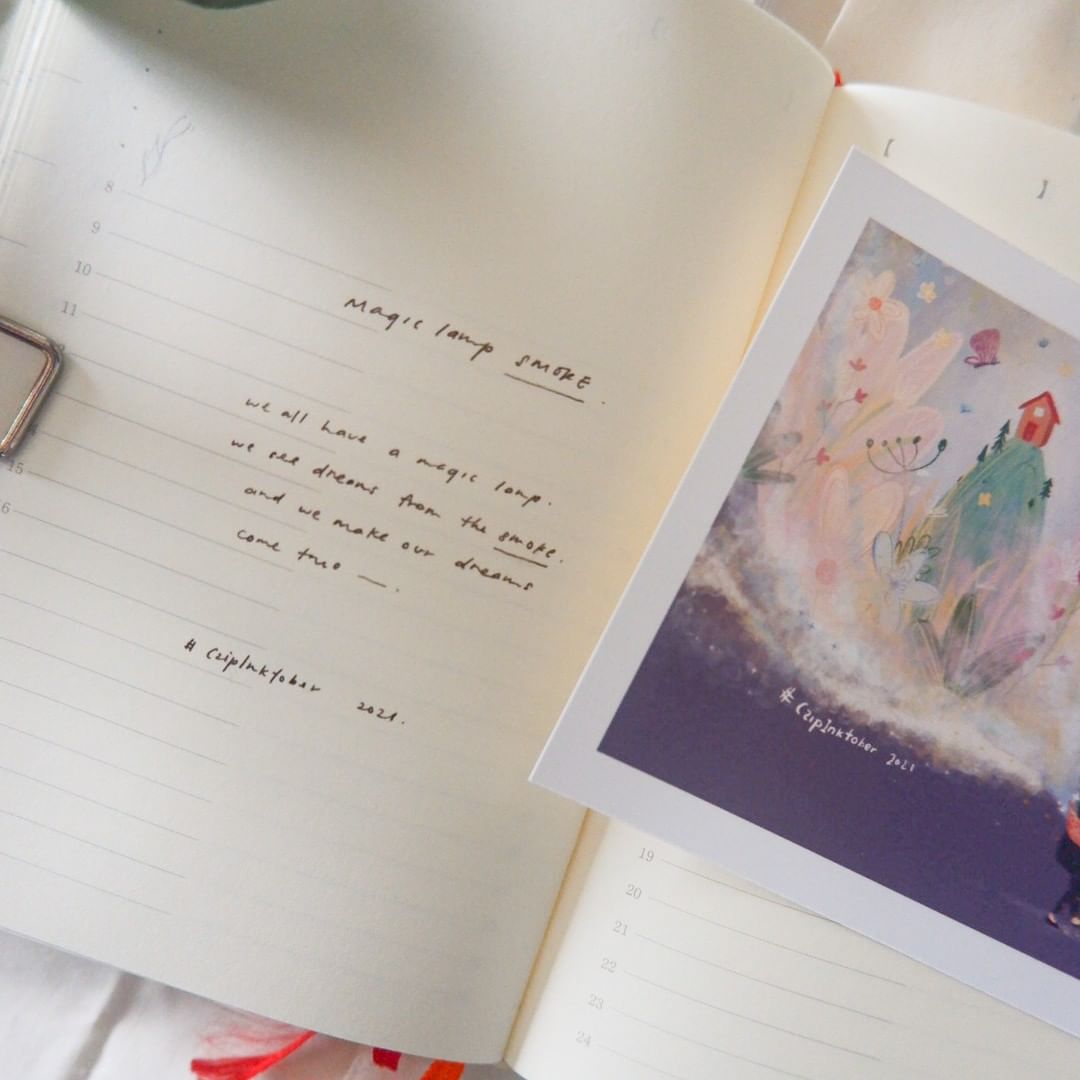 8
9
10
11
15
6
Magic lamp SMOKE.
we all have a magic lamp.
we see dreams from the smoke.
and we make our dreams
come true —.
# CzipInktober
2021.
【
】
# CzipInktober 2021
19
20
21
22
23
24